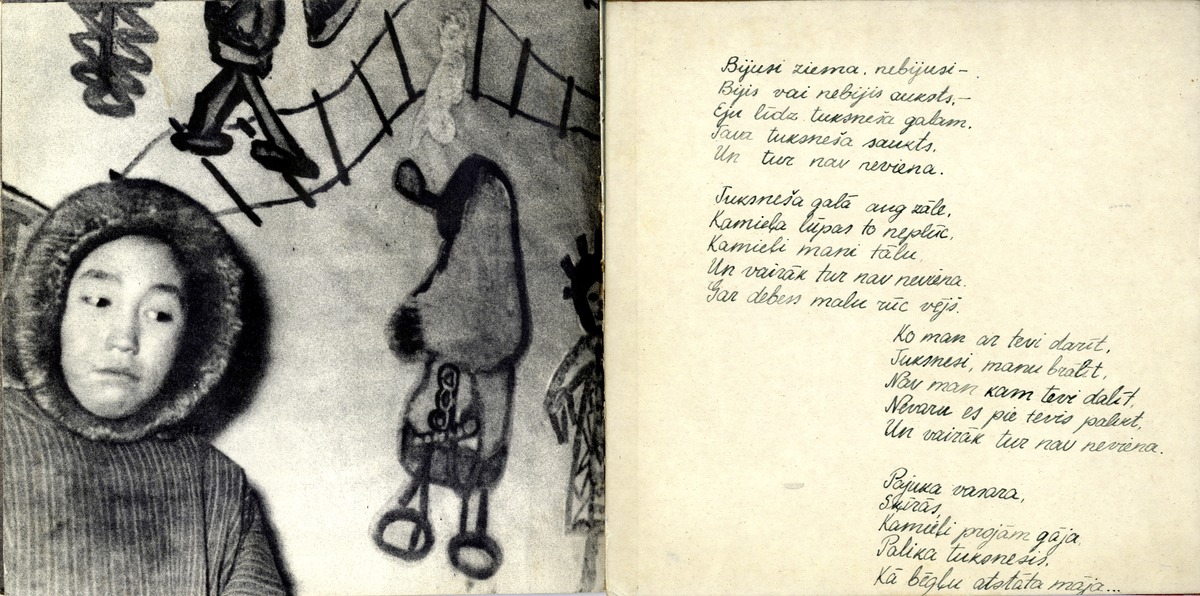 Bijusi ziema, nebijusi –
Bijis vai nebijis auksts, –
Eju līdz tuksneša galam,
Tava tuksneša saukts,
Un tur nav neviena.
Tuksneša galā aug zāle,
Kamieļa lūpas to neplūc,
Kamieļi mani tālu,
Un vairāk tur nav neviena.
Gar debess malu rūc vējš.
Ko man ar tevi darīt,
Tuksnesi, manu brālīt,
Nav man kam tevi dalīt,
Nevaru es pie tevis palikt,
Un vairāk tur nav neviena.
Pajuka vasara,
Šķīrās,
Kamieļi projām gāja.
Palika tuksnesis.
Kā bēgļu atstāta māja...